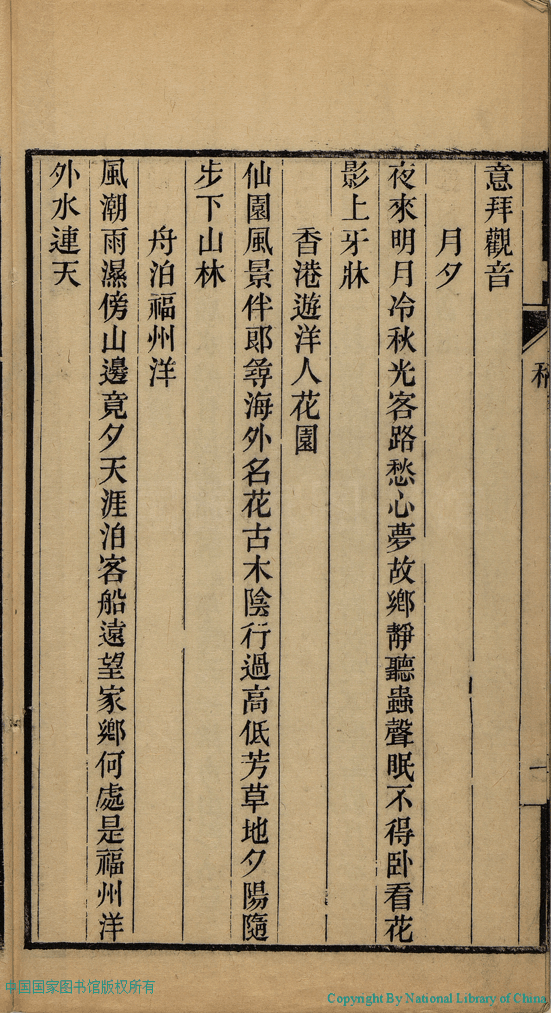 意拜觀音
月夕
夜來明月冷秋光客路愁心夢故鄉靜聽蟲聲眠不得卧看花
影上牙牀
香港遊洋人花園
仙園風景伴郎尋海外名花古木陰行過高低芳草地夕陽隨
步下山林
舟泊福州洋
風潮雨濕傍山邊竟夕天涯泊客船遠望家鄉何處是福州洋
外水連天
中国国家图书馆版权所有
Copyright By National Library of China